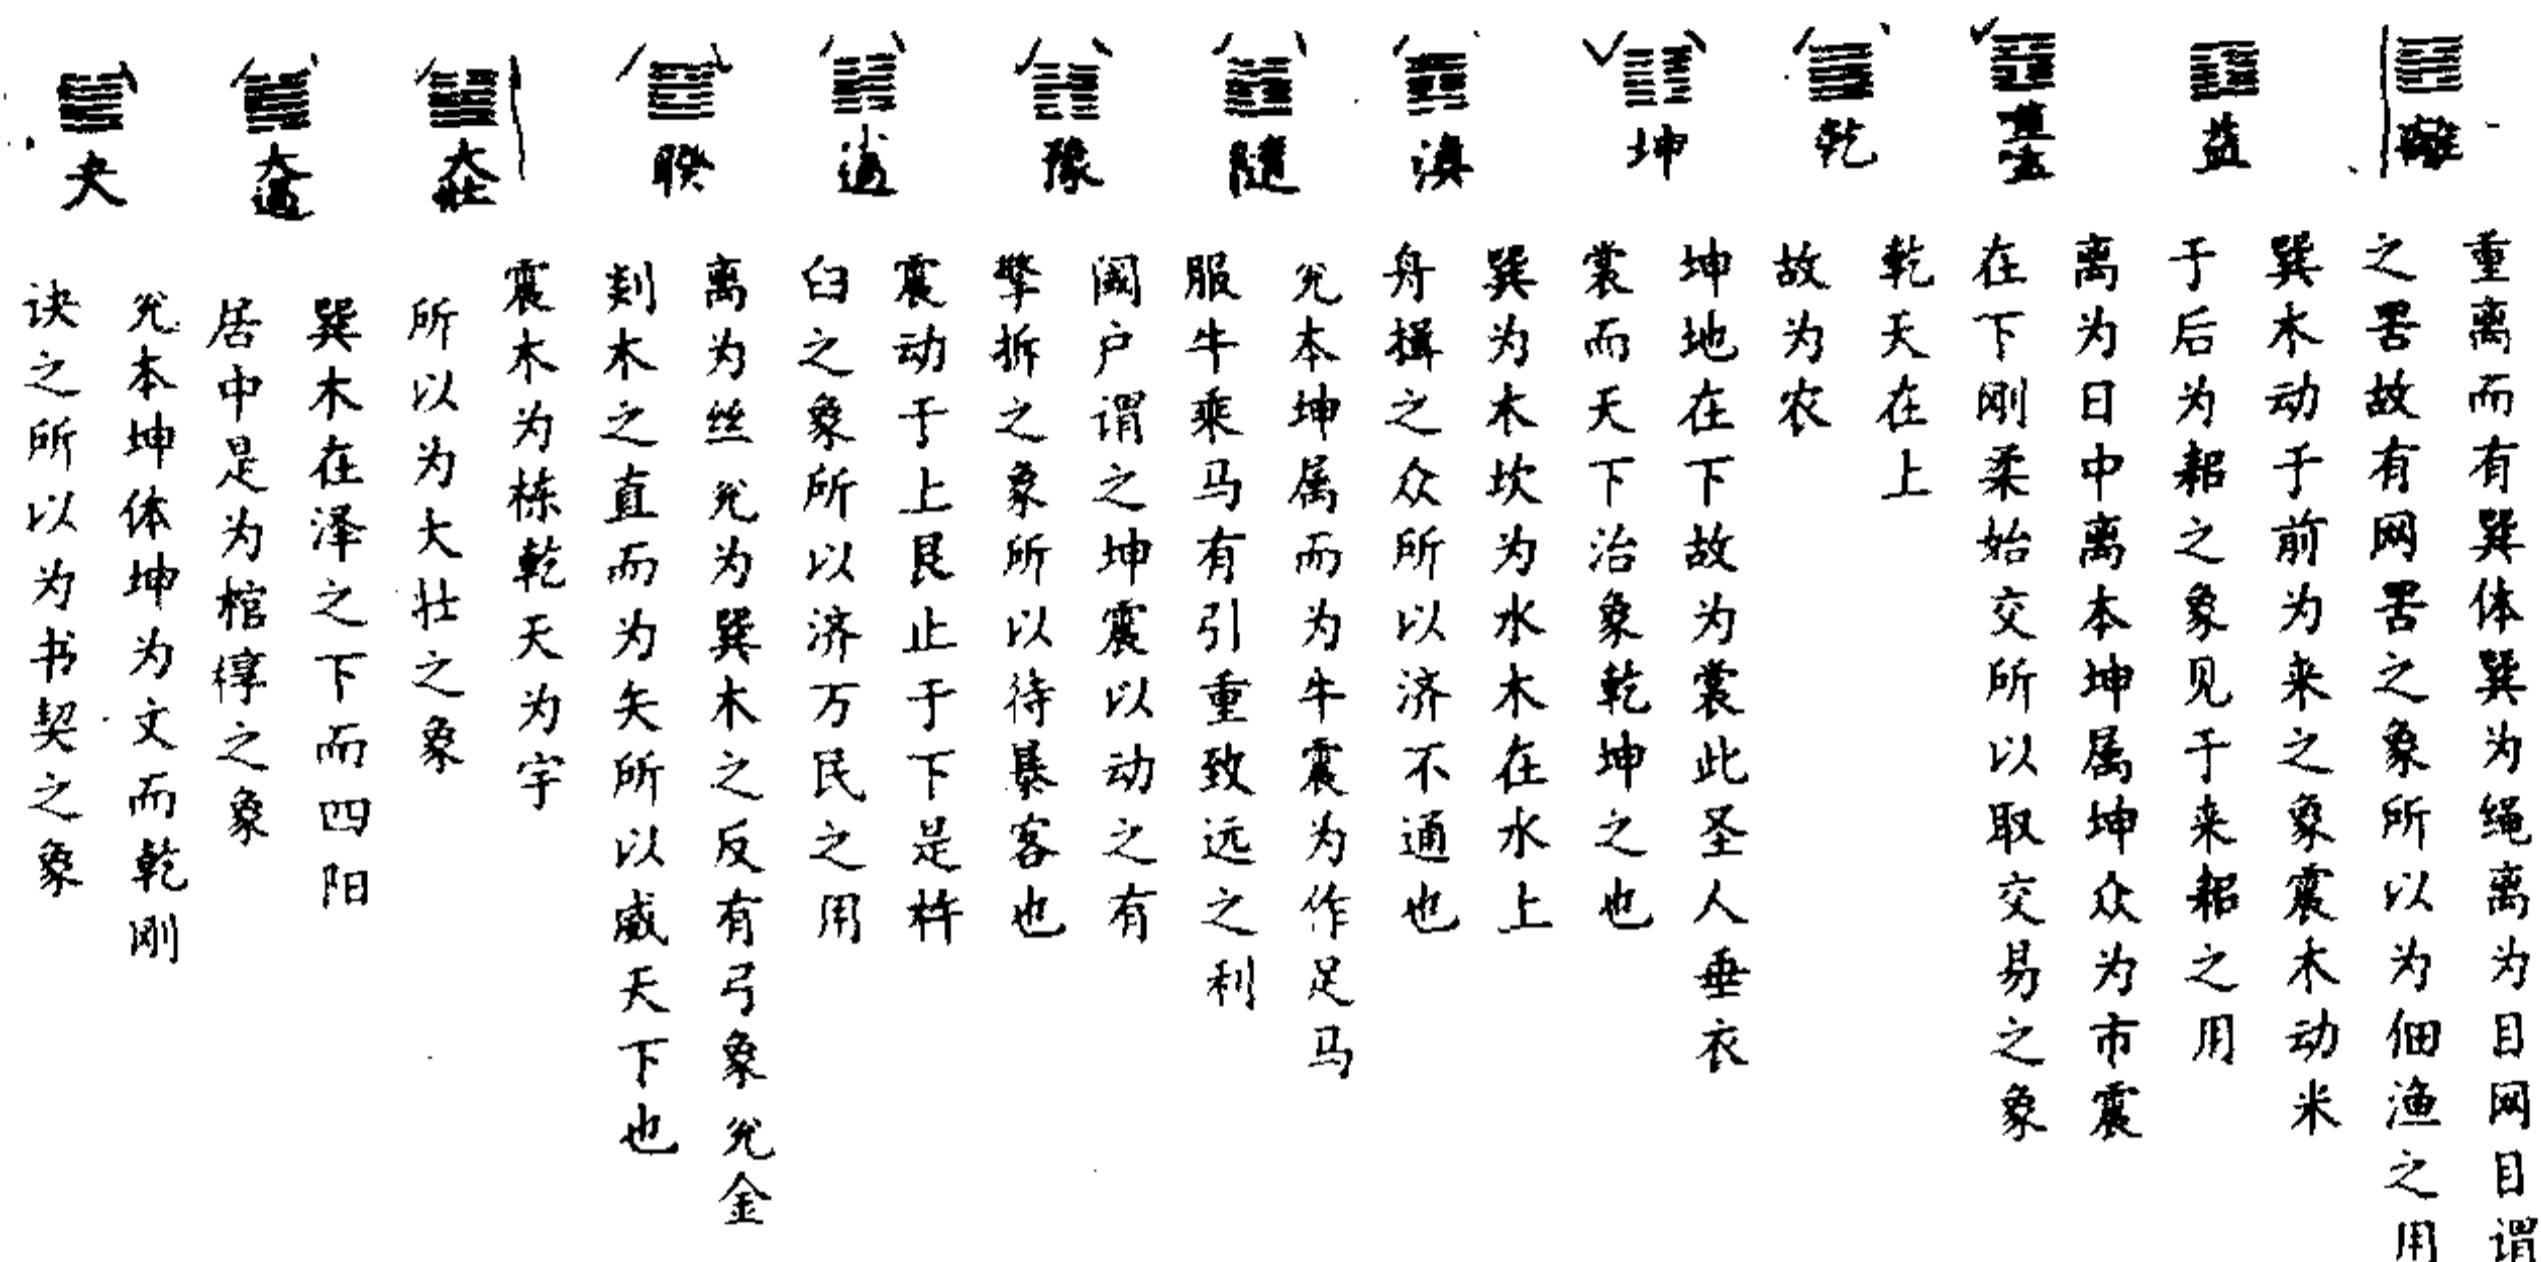 離
重离而有巽体巽为绳离为目网目谓
之罟故有网罟之象所以为佃渔之用
益
巽木动于前为来之象震木动米
于后为耜之象见于来耜之用
噬嗑
离为日中离本坤属坤众为市震
在下刚柔始交所以取交易之象
乾
乾天在上
故为农
坤
坤地在下故为裳此圣人垂衣
裳而天下治象乾坤之也
渙
巽为木坎为水木在水上
舟揖之众所以济不通也
隨
兑本坤属而为牛震为作足马
服牛乘马有引重致远之利
豫
阖户谓之坤震以动之有
擎拆之象所以待暴客也
小過
震动于上艮止于下是杵
臼之象所以济万民之用
睽
离为丝兑为巽木之反有弓象兑金
剡木之直而为矢所以威天下也
大壯
震木为栋乾天为宇
所以为大壮之象
大過
巽木在泽之下而四阳
居中是为棺椁之象
夬
兑本坤体坤为文而乾刚
诀之所以为书契之象